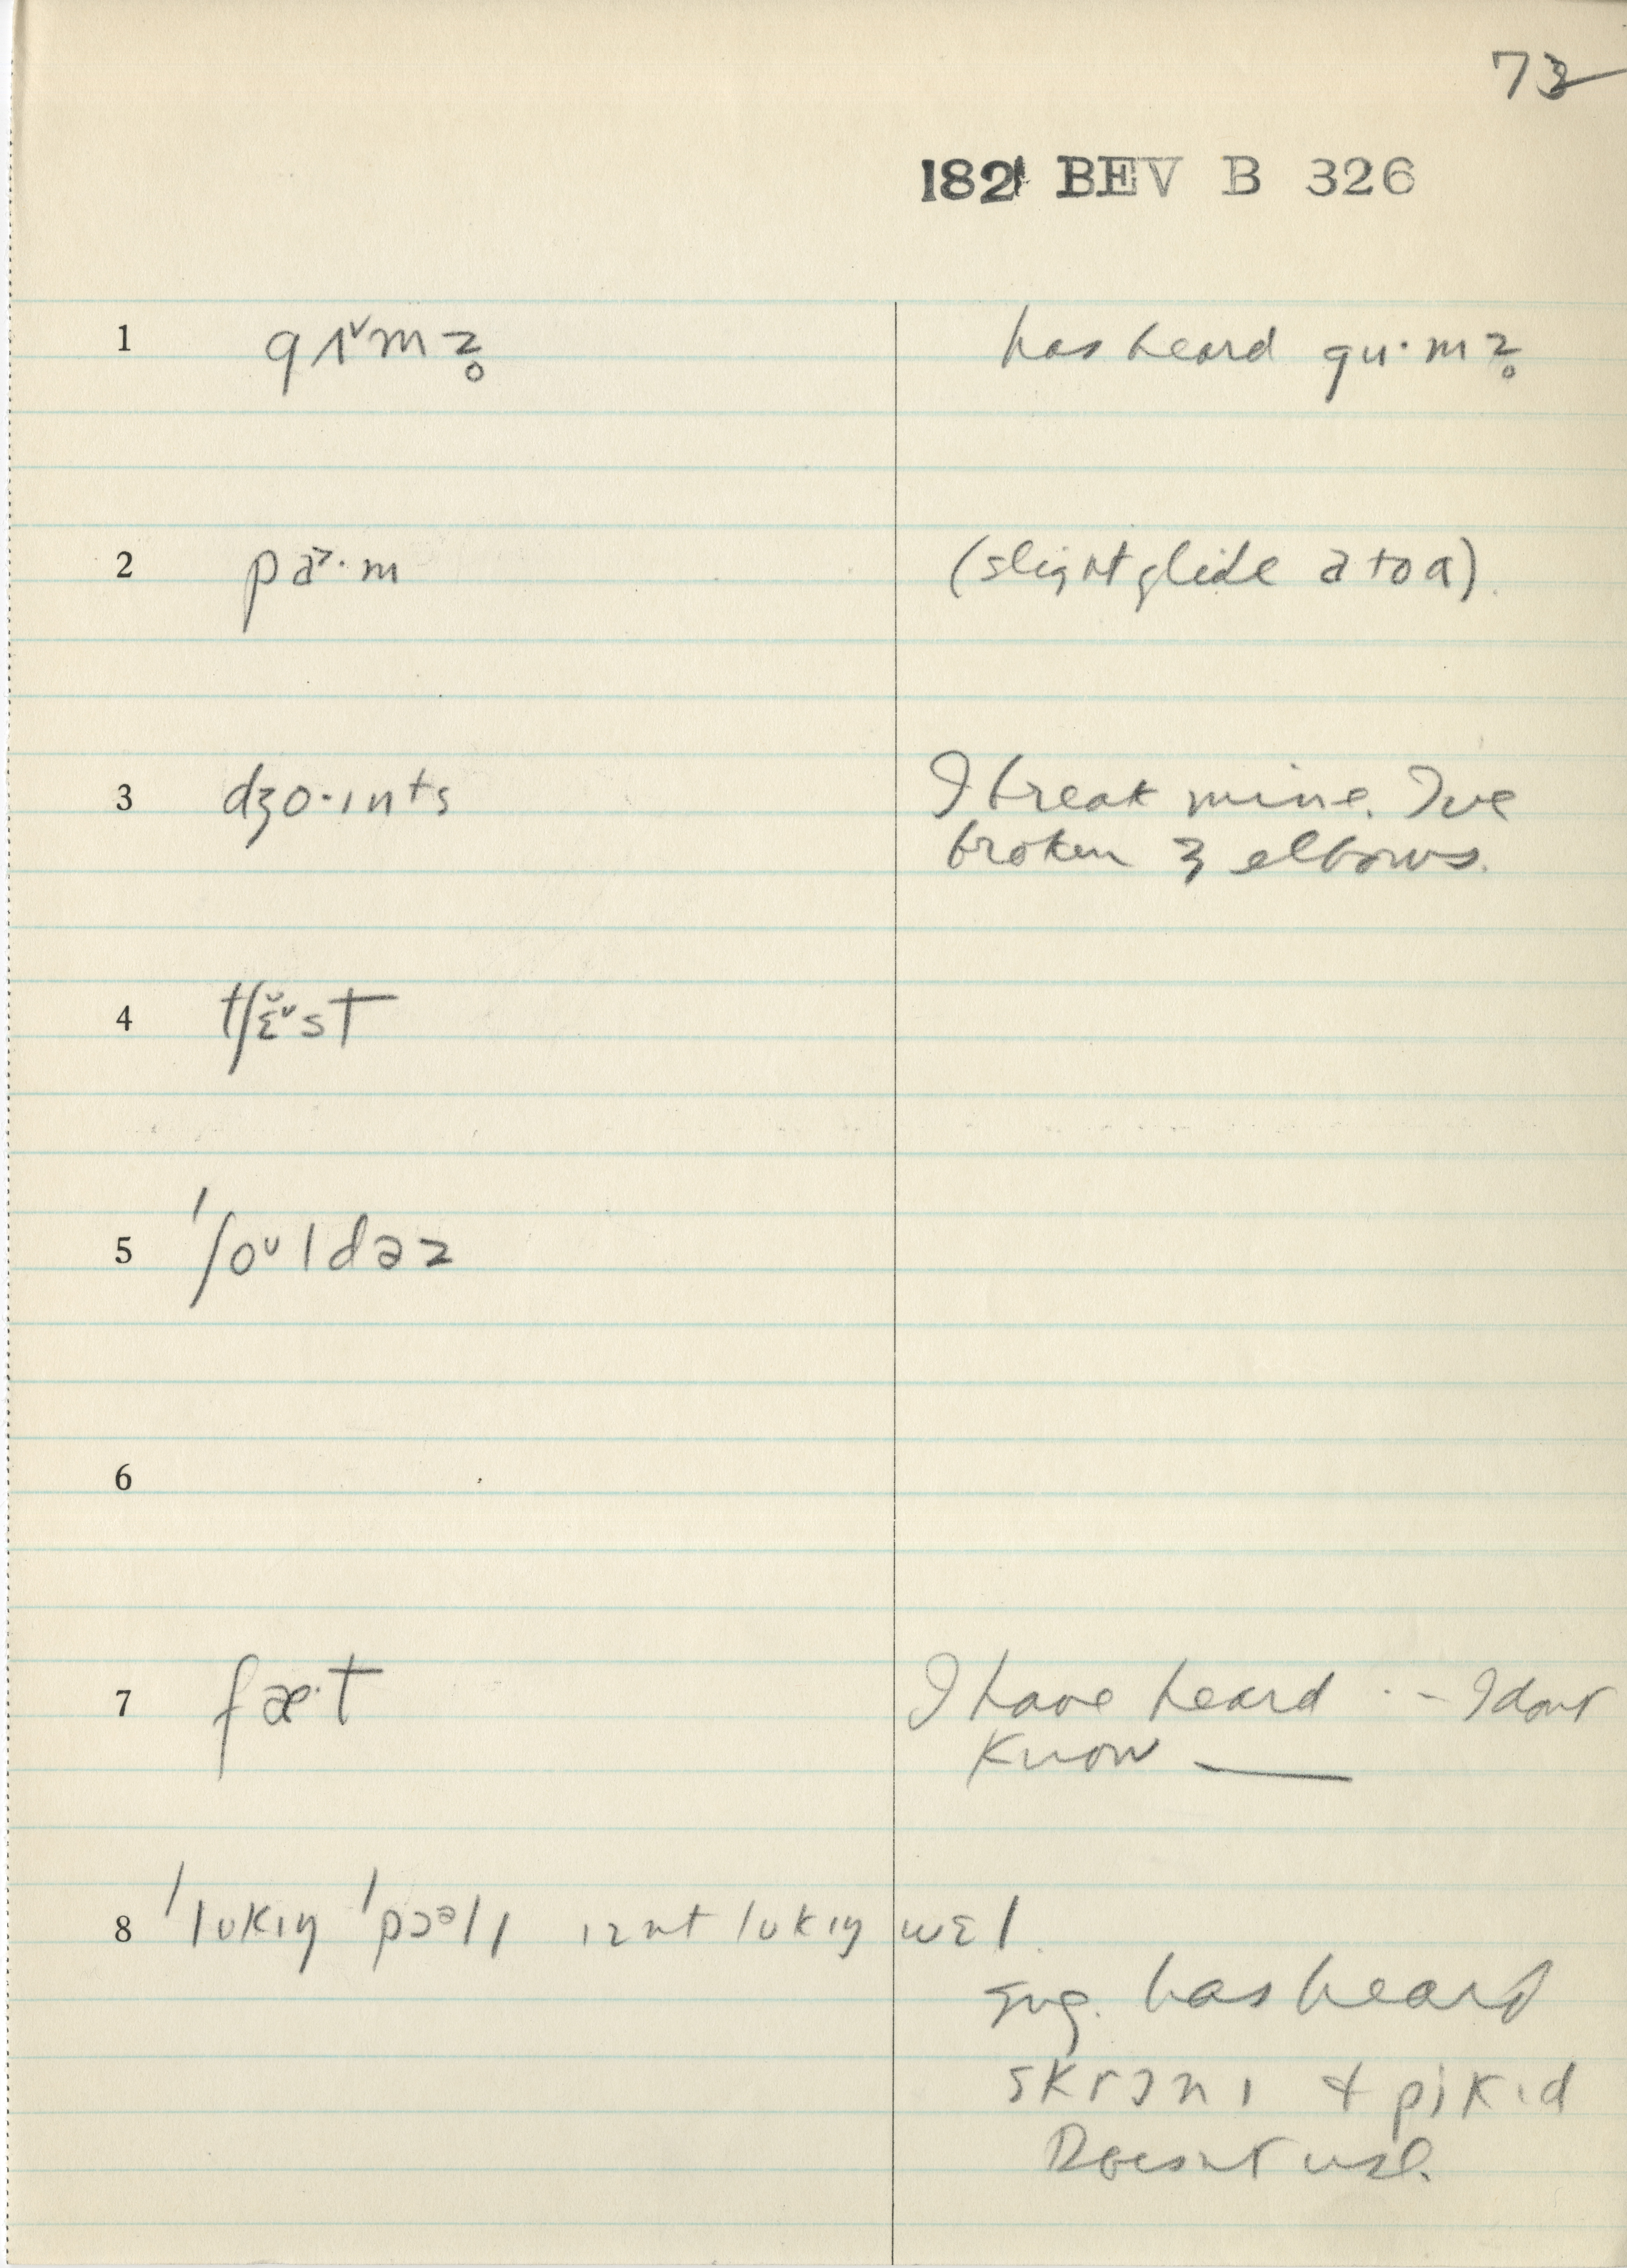 73
182 BEV B 326
1 gʌˇmz̥ has heard gu·mz̥
2 pa˃·m (slight glide a to ɑ).
3 dʒo·ɪnts I break mine. I've
broken 3 elbows.
4 tʃɛ̆ˇst
5 'ʃoᵁldəz
6
7 fæ·t I have heard ·– I dont
know ——
8 'lʊkɪŋ 'pɔᵊlɪ ɪznt lʊkɪŋ wɛl.
sug. has heard
skrɔnɪ & pikɪd
Doesnt use.